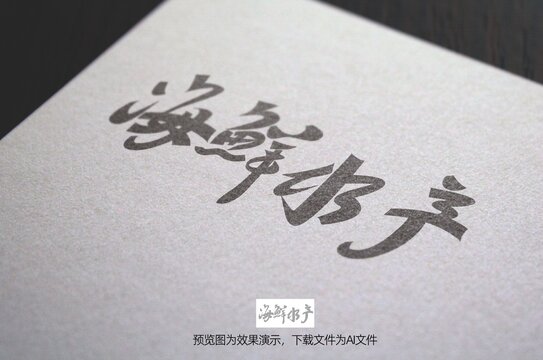 海鲜水产
海鲜水产
预览图为效果演示，下载文件为AI文件